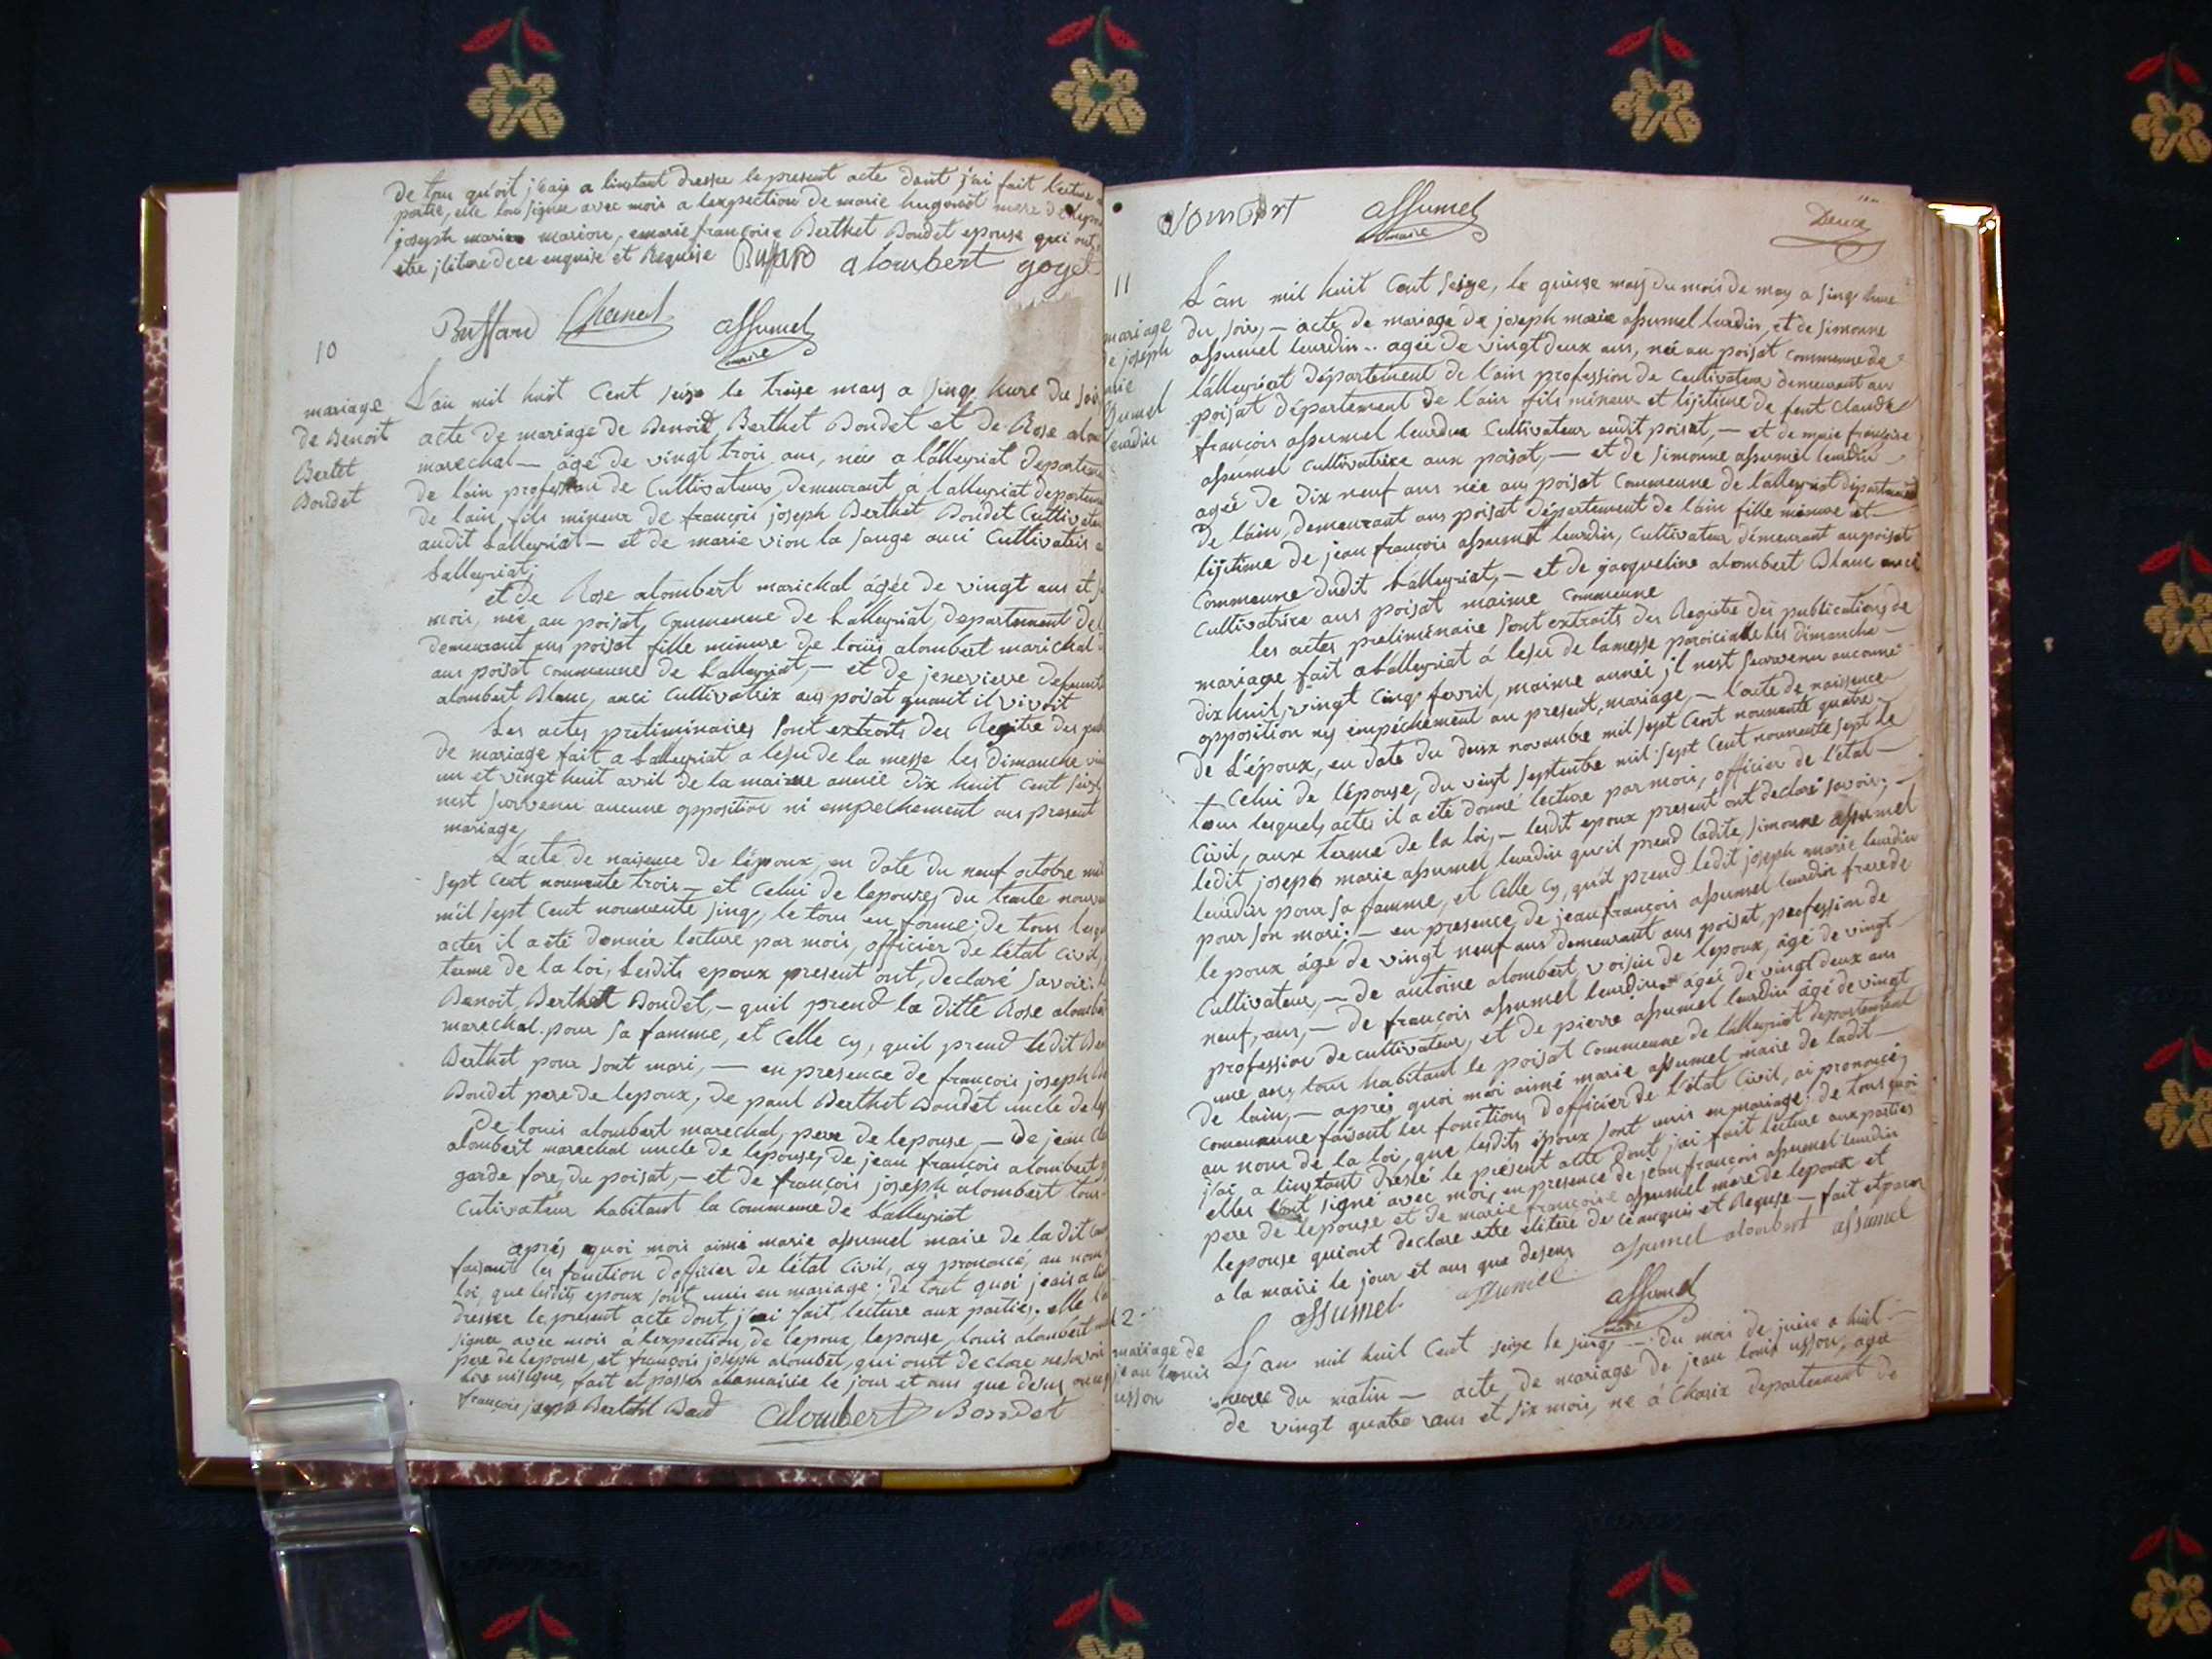 de tou qu'oit j'eais a linstant dresse le present acte dont j'ai fait lecture
partie, elle lon signee avec mois a lexpection de marie hugoniot mere de
joseph marie marion, emarie francoise Berthet Bondet epouse qui ont
etre jlitere de ce enquise et Requise Buffard alombert goyet
Buffard Chanel assumel
maire
10
mariage
de Benoit
Bertet
Bondet
L'an mil huit Cent seise le treise may a sinq hure du soir
acte de mariage de Benoit Berthet Bondet et de Rose alom
marechal — agé de vingt trois ans, née a lalleyriat departeme
de lain profession de Cultivateur, demeurant a lalleyriat departeme
de lain, fils mineur de françois joseph Berthet Bondet Cultivateur
audit Lalleyriat — et de marie vion la sange auci Cultivatris a
Lalleyriat;
et de Rose alombert marichal agée de vingt ans et
mois, née au poisat, Commune de Lalleyriat, departement de
demeurant aus poisat fille mineure de louis alombert marichal
aus poisat commeune de Lalleyriat, — et de jenevieve defeunte
alombert Blanc, auci Cultivatrix aus poisat quant il vivoit
Les actes preliminaires sont extraits des Regitre des pub
de mariage fait a Lalleyriat a lesu de la messe les dimanche vin
un et vingt huit avril de la maime année dix huit Cent seize
nest survenu aucune opposition ni empechement aus present
mariage,
L'acte de naisence de lépoux, en date du neuf octobre mil
sept Cent nonuente trois — et Celui de lepouse, du trente nouv
mil sept Cent nonuente sinq, le tous en forme; de tous lesqu
actes il a eté donnée lecture par mois, officier de létat Civil,
terme de la loi, Lesdits epoux present ont, declaré savoir:
Benoit, Berthet Bondet, — quil prend la ditte Rose alomber
marechal pour sa famme, et Celle cy, quil prend ledit Ben
Berthet pour sont mari, — en presence de francois joseph Be
Bondet pere de lepoux, de paul Berthet Bondet uncle de lep
De louis alombert marechal, pere de lepouse, — de jean Cl
alombert marechal uncle de lepouse, de jean françois alombert
garde fore, du poisat, — et de françois joseph alombert tous
Cutivateur habitant la Commeune de Lalleyriat
aprés quoi mois aimé marie assumel maire de la dit Com
faisants les fonction d'officier de létat Civil, ay prononcé, au nom
loi, que lesdits epoux sont unis en mariage; de tout quoi jeais a lin
dresser le present acte dont, j'ai fait lecture aux parties; elle l'o
signee avec mois à l'expection de lepoux, lepouse, louis alombert
pere de lepouse, et françois joseph alombet, qui ont declare nesavoir
lire nisigne, fait et passer alamairie le jour et ans que desus
françois joseph Bertet Bond alombert Bondet
alombert assumel
maire
Deuex
11
mariage
de joseph
marie
assumel
leurdin
L'an mil huit Cent seize, le quinse may du mois de may a sinq hure
du soir, — acte de mariage de joseph marie assumel leurdin, et de simonne
assumel leurdin.. agée de vingt deux ans, née au poisat commeune de
lalleyriat département de l'ain profession de Cultivateur demeurant au
poisat département de l'ain fils mineur et lijitime de feut Claude
françois assumel leurdin Cultivateur audit poisat, — et de marie françoise
assumel Cultivatrice aux poisat, — et de simonne assumel leurdin —
agée de Dix neuf ans née aus poisat Commeune de lalleyriat département
De láin, demeurant aus poisat département de láin fille mineure et
lijitime de jean françois assumel leurdin, Cultivateur démeurant au poisat
Commeune dudit Lalleyriat, — et de jacqueline alombert Blanc auci
Cultivatrice aus poisat maime Commeune
les actes preliménaire sont extraits des Registre des publications de
mariage fait a Lalleyriat á lesu de lamesse paroiciale les dimanche —
dix huit, vingt Cinq fevril, maime année jl nest seurvenu aucunne
opposition nis empéchément au present, mariage, — l'acte de naissence
de L'époux, en date du deux novanbre mil sept Cent nonuente quatre
Celui de l'épouse, du vint septenbre mil sept Cent nonuente sept de
tous lesquels actes il a eté donné lecture par mois, officier de l'état —
Civil, aux terme de la loi, — lesdit epoux present ont declaré savoir: —
ledit joseph marie assumel leurdin qu'il prend ladite simonne assumel
leurdin pour sa famme, et Celle cy, quil prend ledit joseph marie leurdin
pour son mari: — en presence, de jean françois assumel leurdin frere de
lepoux ágé de vingt neuf ans demeurant aus poisat, profession de
Cultivateur, — de antoine alombert, voisin de lepoux, ágé de vingt
neuf, ans, — de françois assumel leurdin agée de vingt deux ans
profession de cultivateur, et de pierre assumel leurdin ágé de vingt
une ans, tous habitant le poisat Commeune de lalleyriat departement
de lain, — aprés quoi moi aimé marie assumel maire de ladit —
Commeune faisant les fonctions d'officier de l'état Civil, ai prononcé,
au nom de la loi, que lesdits époux sont unis en mariage: de tous quoi
j'ai a linstant dressé le présent acte dont j'ai fait lecture aux parties
elles lont signé avec mois, en presence de jean françois assumel leurdin
pere de lepouse et de marie françoise assumel mere de lepoux et
lepouse quiont declare etre elitere de ceanquis et Requse — fait et passer
a la mairi le jour et ans que deseus assumel alombert assumel
assumel assumel assumel
maire
12
mariage de
jean louis
usson
L'an mil huit Cent seize le sinq — du mois de juin a huit —
heure du matin — acte de mariage de jean louis usson, agée
de vingt quatre ans et six mois, né á Charix departement de